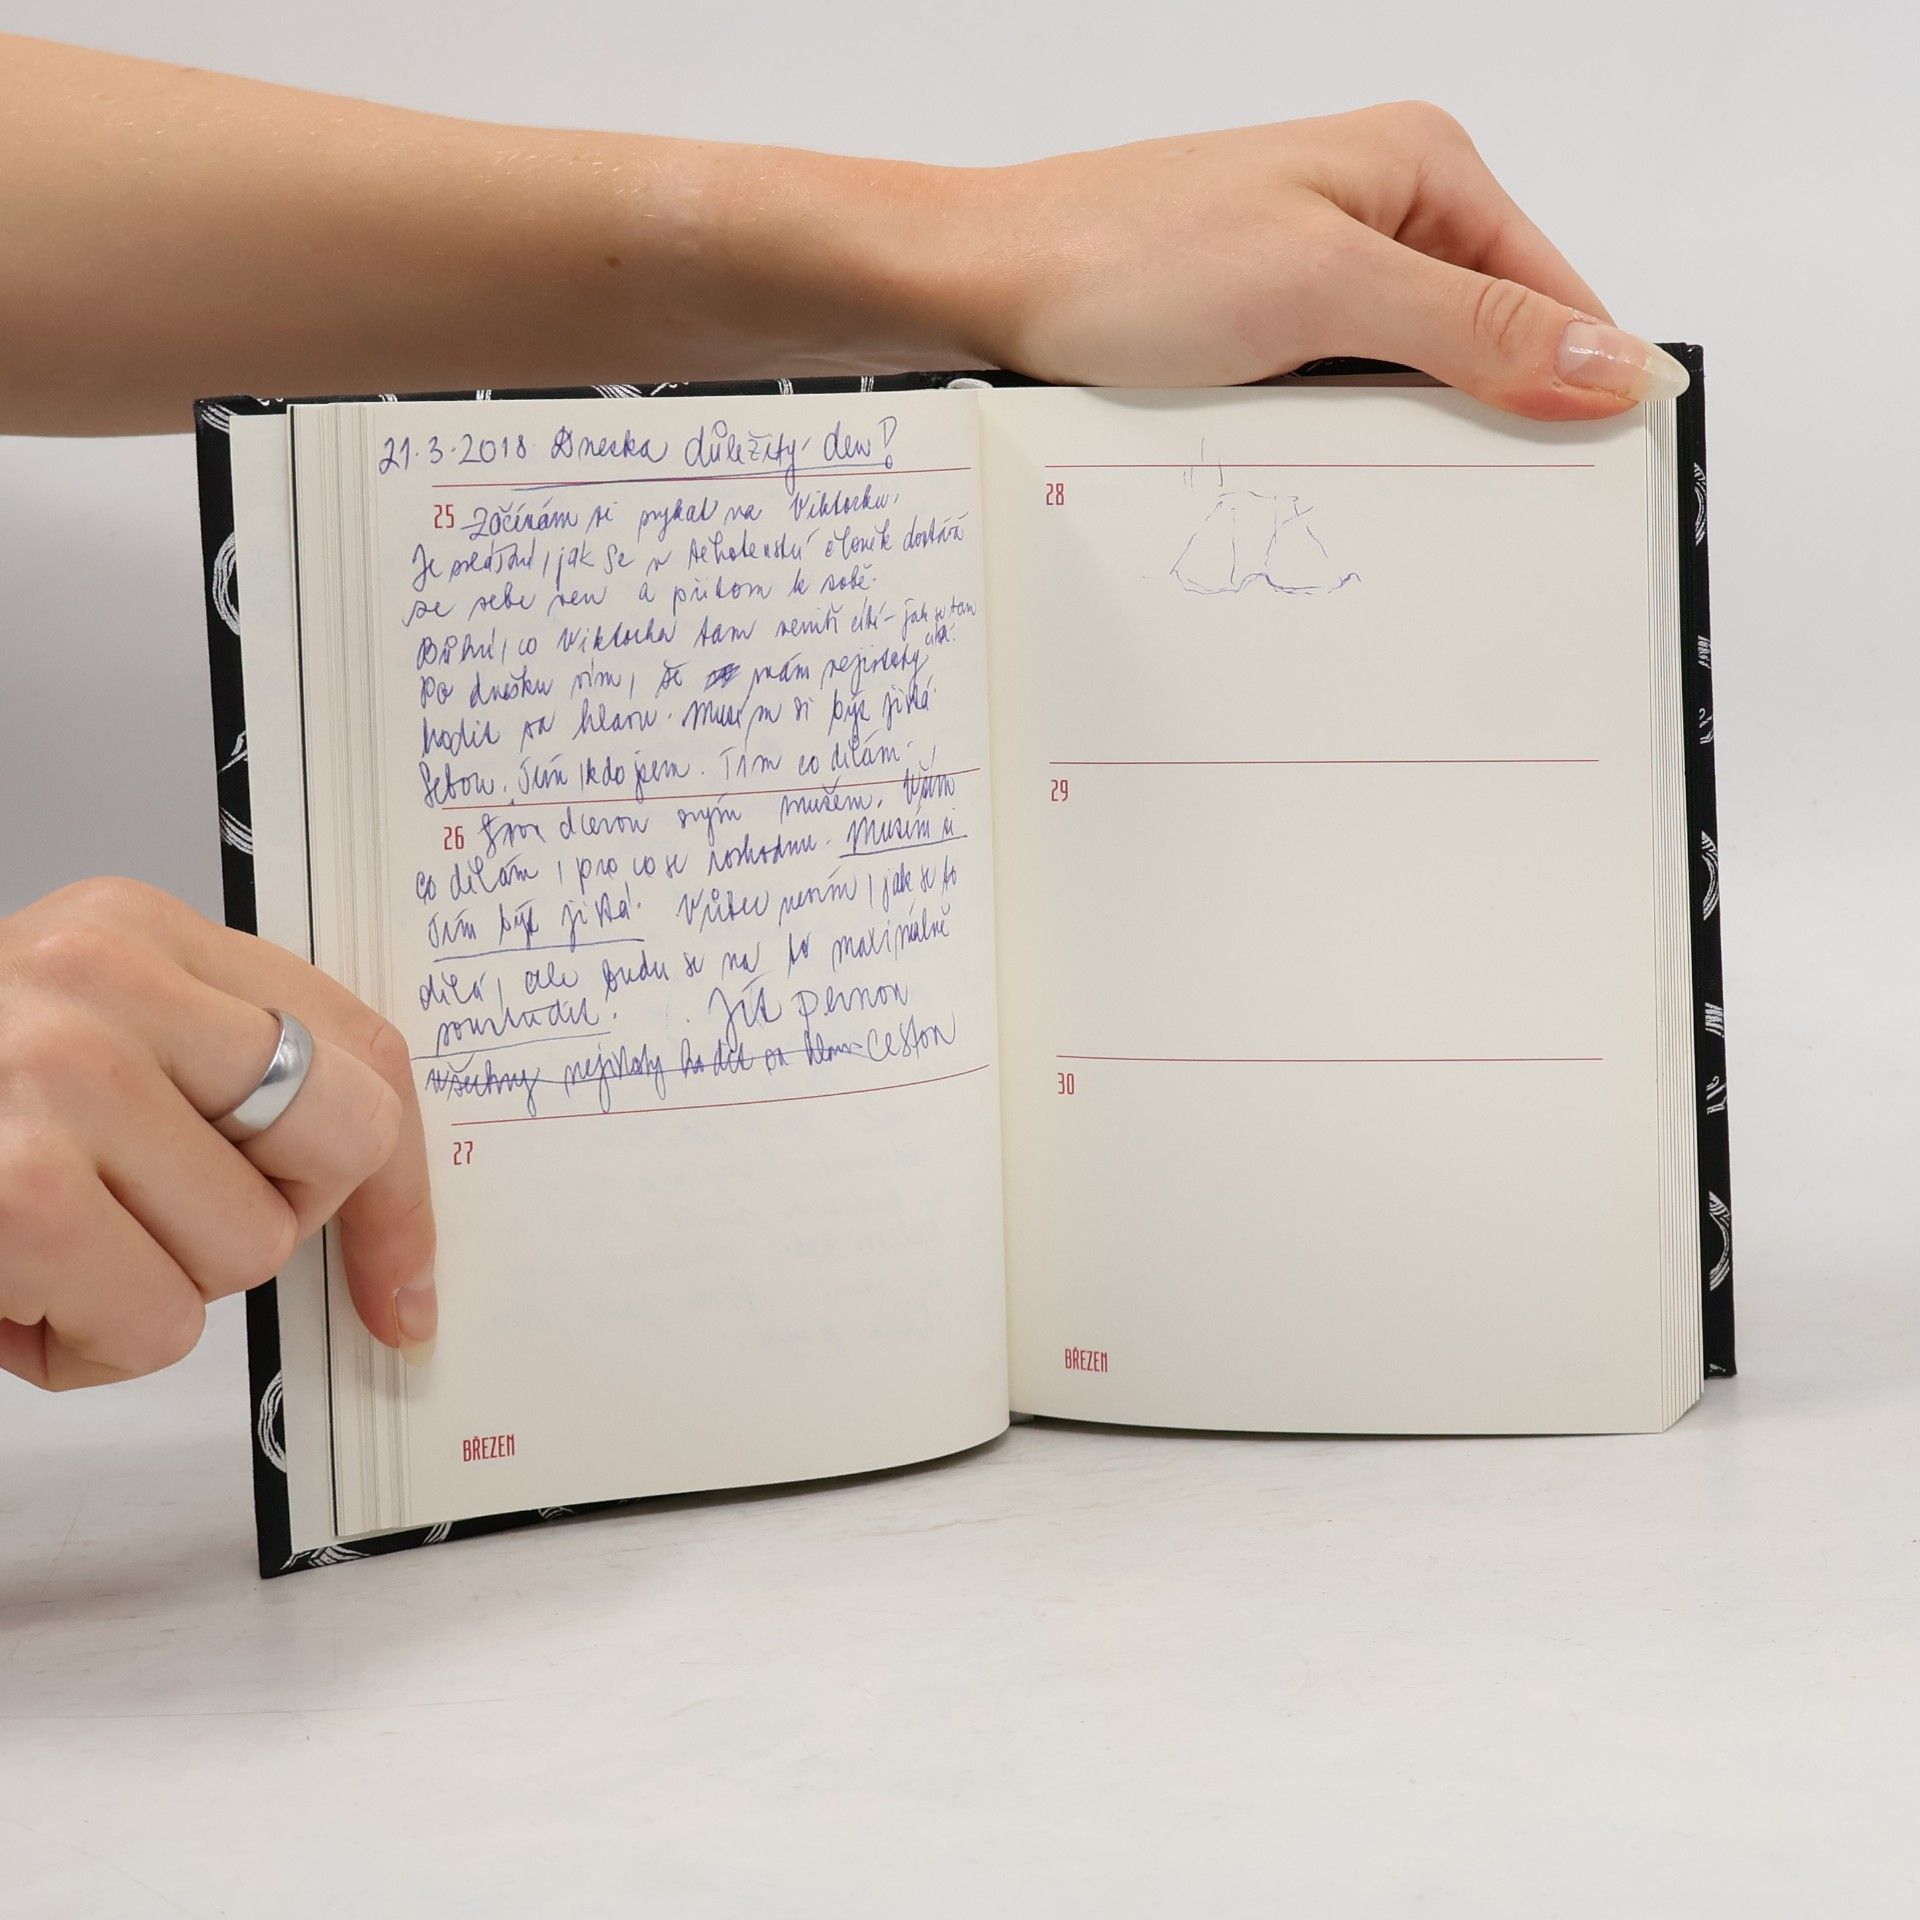 21.3.2018 Dneska důležitý den!
25 Začínám si zvykat na Viktorku.
Je zvláštní, jak se v těhotenství člověk dostává
ze sebe ven a přitom k sobě.
Bůhví, co Viktorka tam uvnitř cítí – jak se tam
cítí.
Po dnešku vím, že mám nejistoty
hodit za hlavu. Musím si být jistá
Sebou. Tím, kdo jsem. Tím co dělám.
26 dcerou svým mužem. Vším
co dělám, pro co se rozhodnu. Musím si
tím být jistá. Vůbec nevím, jak se to
dělá, ale budu se na to maximálně
soustředit. Jít pevnou
všechny nejistoty hodit za hlavu cestou
27
BŘEZEN
28
29
30
BŘEZEN